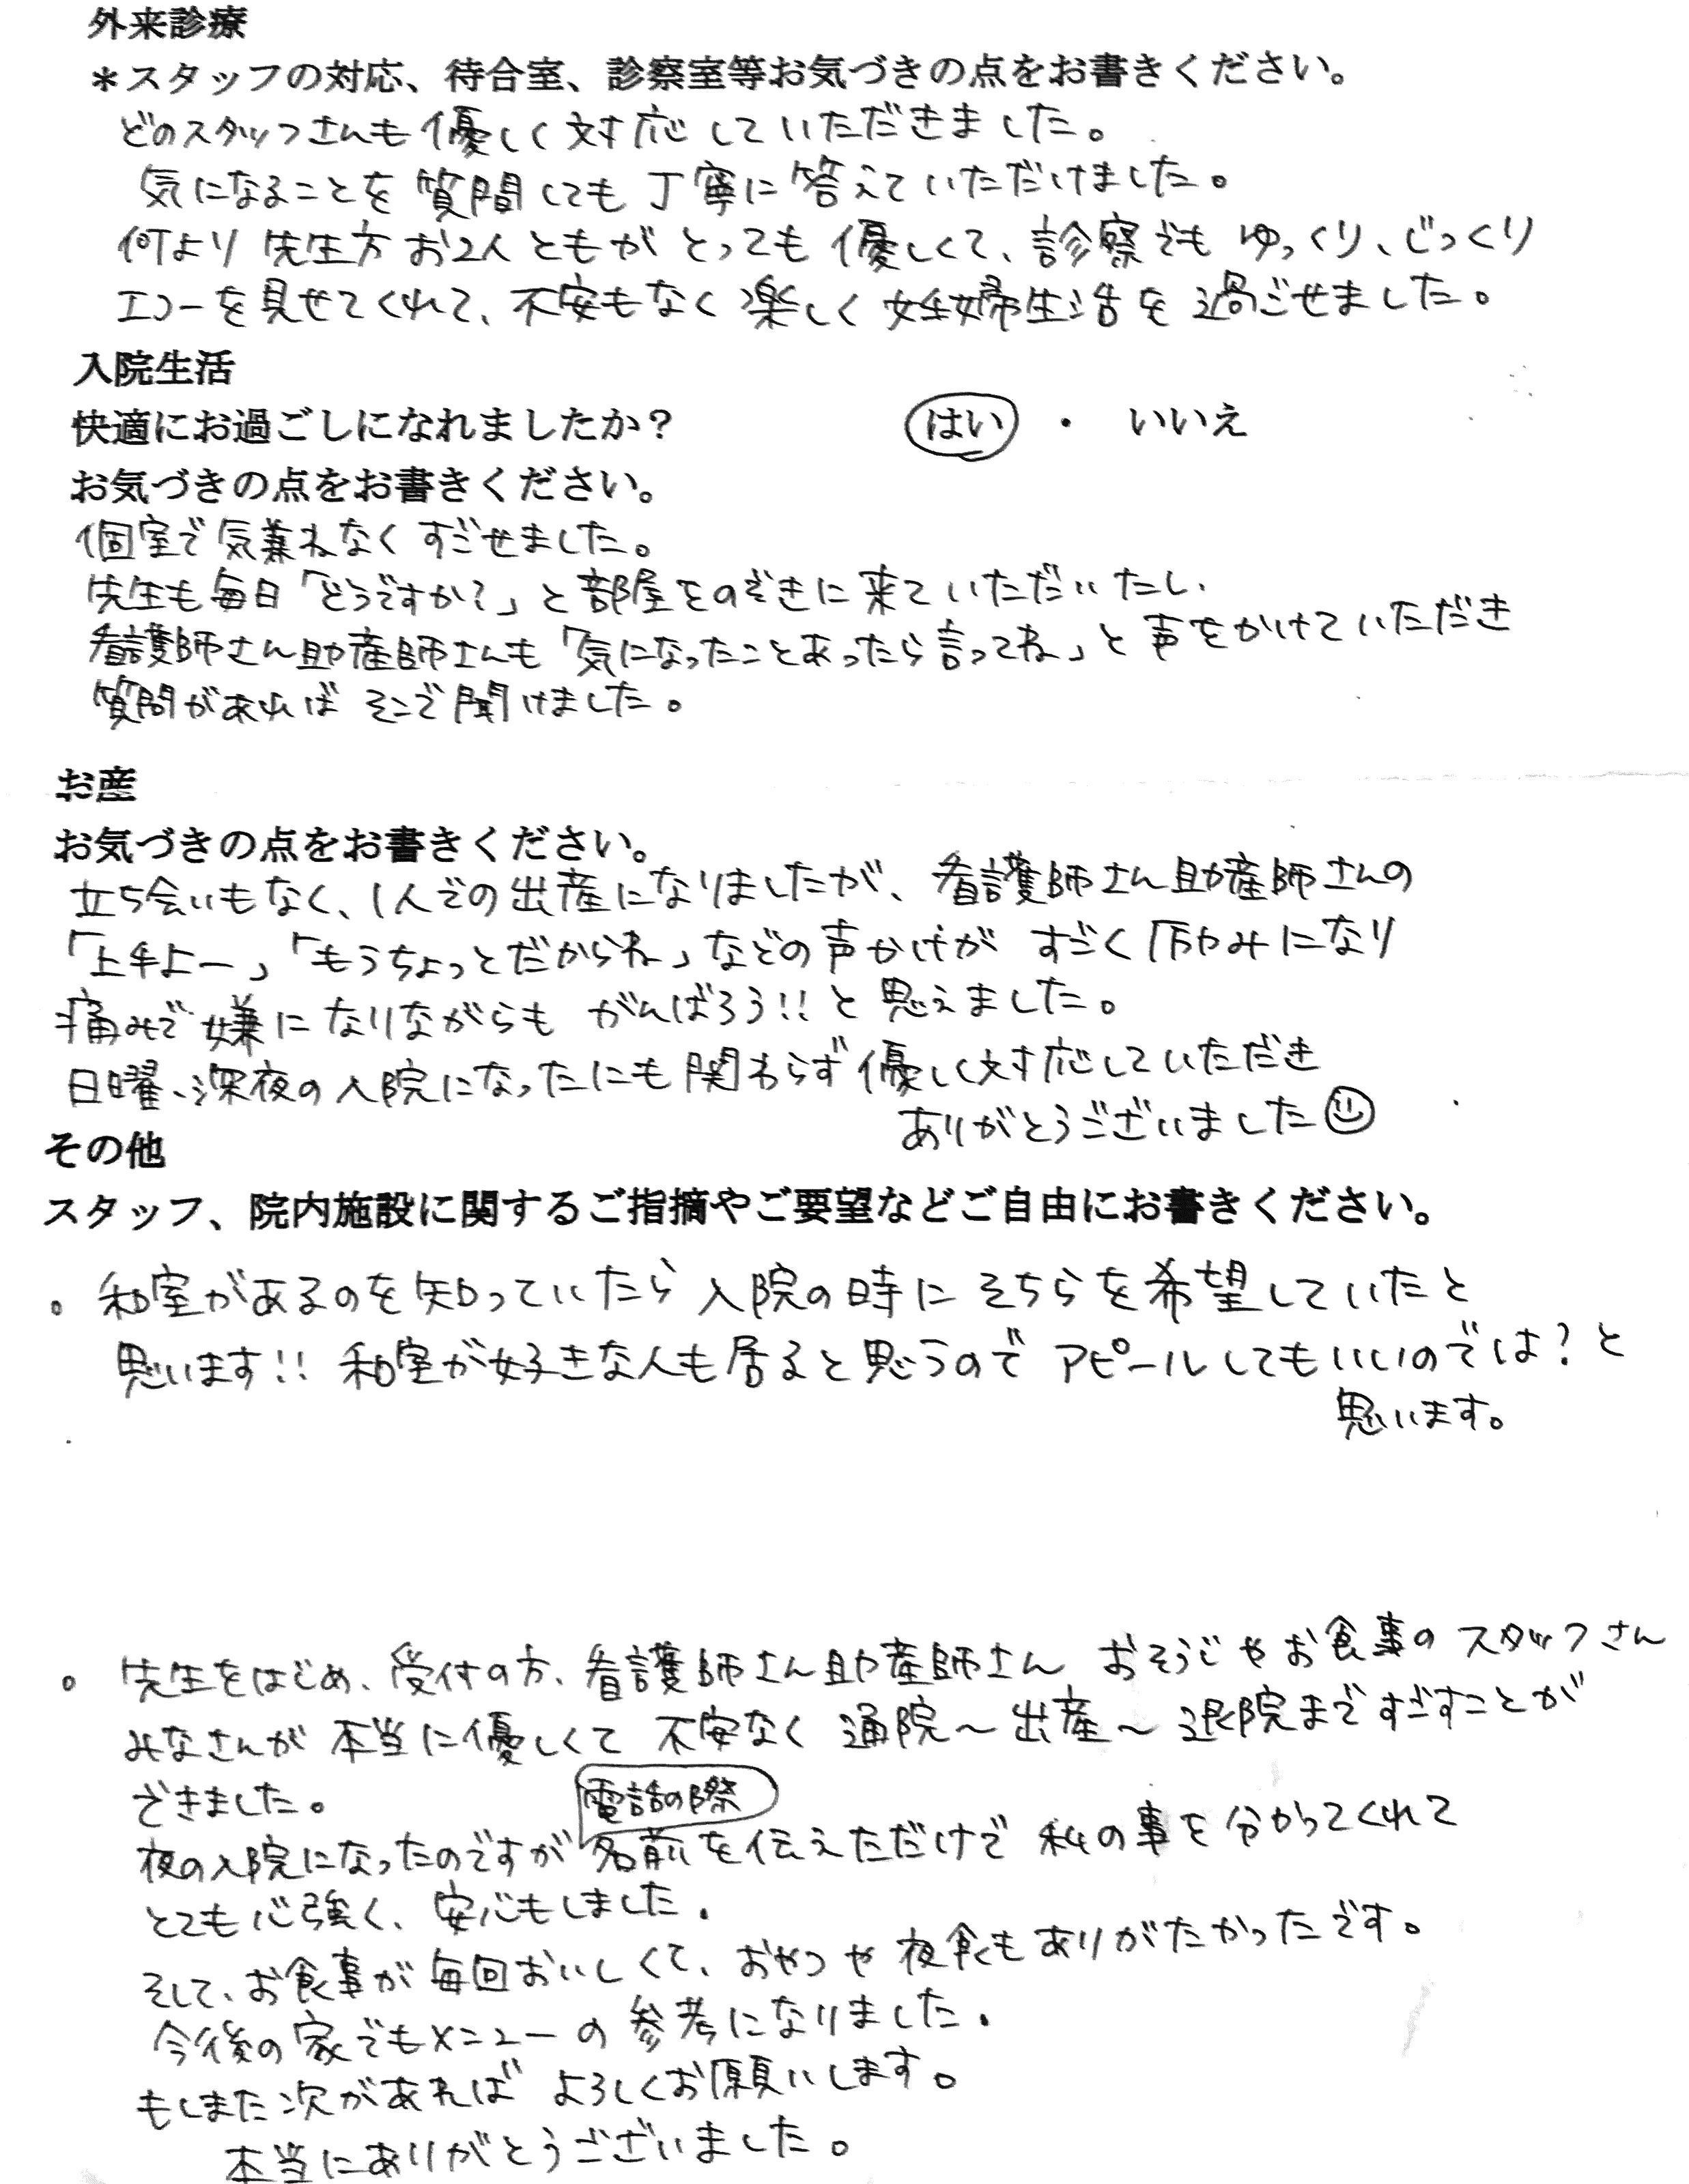 外来診療
＊スタッフの対応、待合室、診察室等お気づきの点をお書きください。
どのスタッフさんも優しく対応していただきました。
気になることを質問しても丁寧に答えていただけました。
何より先生方お2人ともがとっても優しくて、診察でもゆっくり、じっくり
エコーを見せてくれて、不安もなく楽しく妊婦生活を過ごせました。
入院生活
快適にお過ごしになれましたか？ はい ・ いいえ
お気づきの点をお書きください。
個室で気兼ねなくすごせました。
先生も毎日「どうですか?」と部屋をのぞきに来ていただいたし、
看護師さん助産師さんも「気になったことあったら言ってね」と声をかけていただき
質問があればそこで聞けました。
お産
お気づきの点をお書きください。
立ち会いもなく、1人での出産になりましたが、看護師さん助産師さんの
「上手よー」「もうちょっとだからね」などの声かけがすごく励みになり
痛みで嫌になりながらもがんばろう!!と思えました。
日曜、深夜の入院になったにも関わらず優しく対応していただき
ありがとうございました☺
その他
スタッフ、院内施設に関するご指摘やご要望などご自由にお書きください。
。和室があるのを知っていたら入院の時にそちらを希望していたと
思います!!和室が好きな人も居ると思うのでアピールしてもいいのでは?と
思います。
。先生をはじめ、受付の方、看護師さん助産師さんおそうじやお食事のスタッフさん
みなさんが本当に優しくて不安なく通院～出産～退院まですごすことが
できました。
電話の際
夜の入院になったのですが名前を伝えただけで私の事を分かってくれて
とても心強く、安心もしました。
そして、お食事が毎回おいしくて、おやつや夜食もありがたかったです。
今後の家でもメニューの参考になりました。
もしまた次があればよろしくお願いします。
本当にありがとうございました。